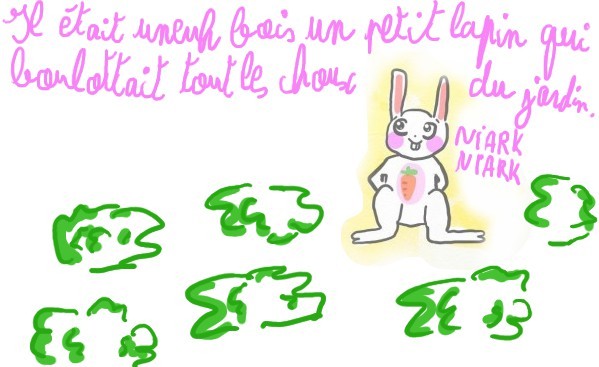 Il était uneuh bois un petit lapin qui
boulottait tout les choux du jardin.
NIARK
NIARK